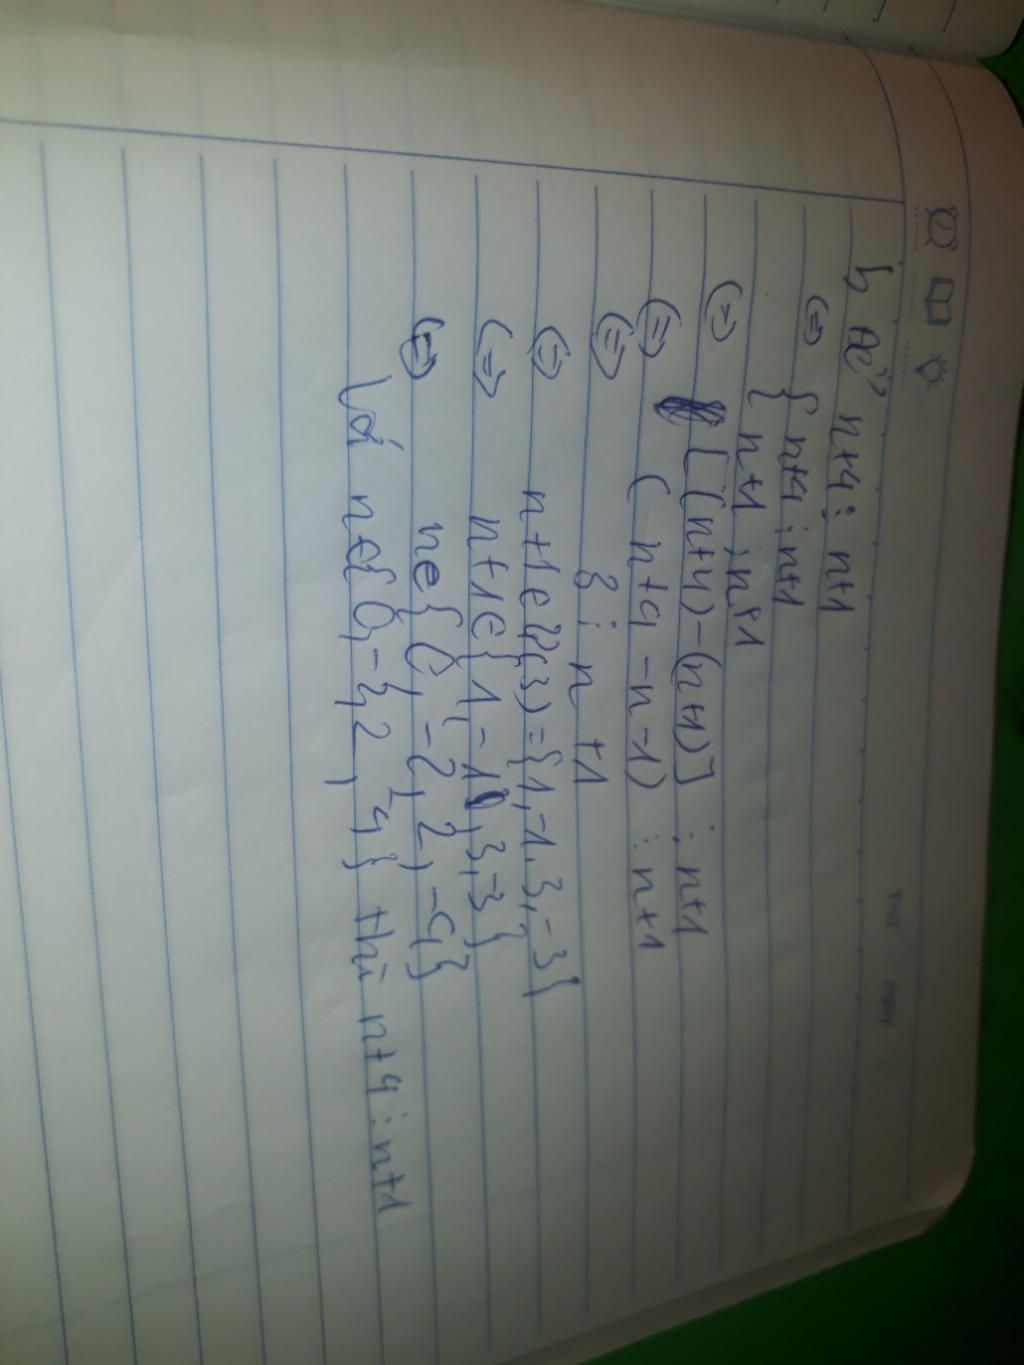 Thứ Ngày
n+4 ⋮ n+1
(=) { n+4 ⋮ n+1
{ n+1 ⋮ n+1
(=) [(n+4)-(n+1)] ⋮ n+1
(=) (n+4-n-1) ⋮ n+1
(=) 3 ⋮ n+1
(=) n+1∈Ư(3)={1,-1.3,-3}
(=) n+1∈{1,-1,3,-3}
(=) n∈{0,-2,2,-4}
n∈{0,-2,2,-4} thì n+4⋮n+1